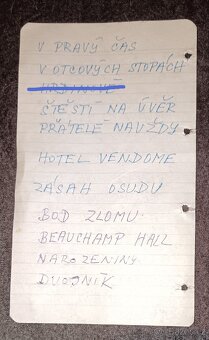 V PRAVÝ ČAS
V OTCOVÝCH STOPÁCH
ŠTĚSTÍ NA ÚVĚR
PŘÁTELÉ NAVŽDY
HOTEL VENDOME
ZÁSAH OSUDU
BOD ZLOMU
BEAUCHAMP HALL
NAROZENINY
DVOJNÍK